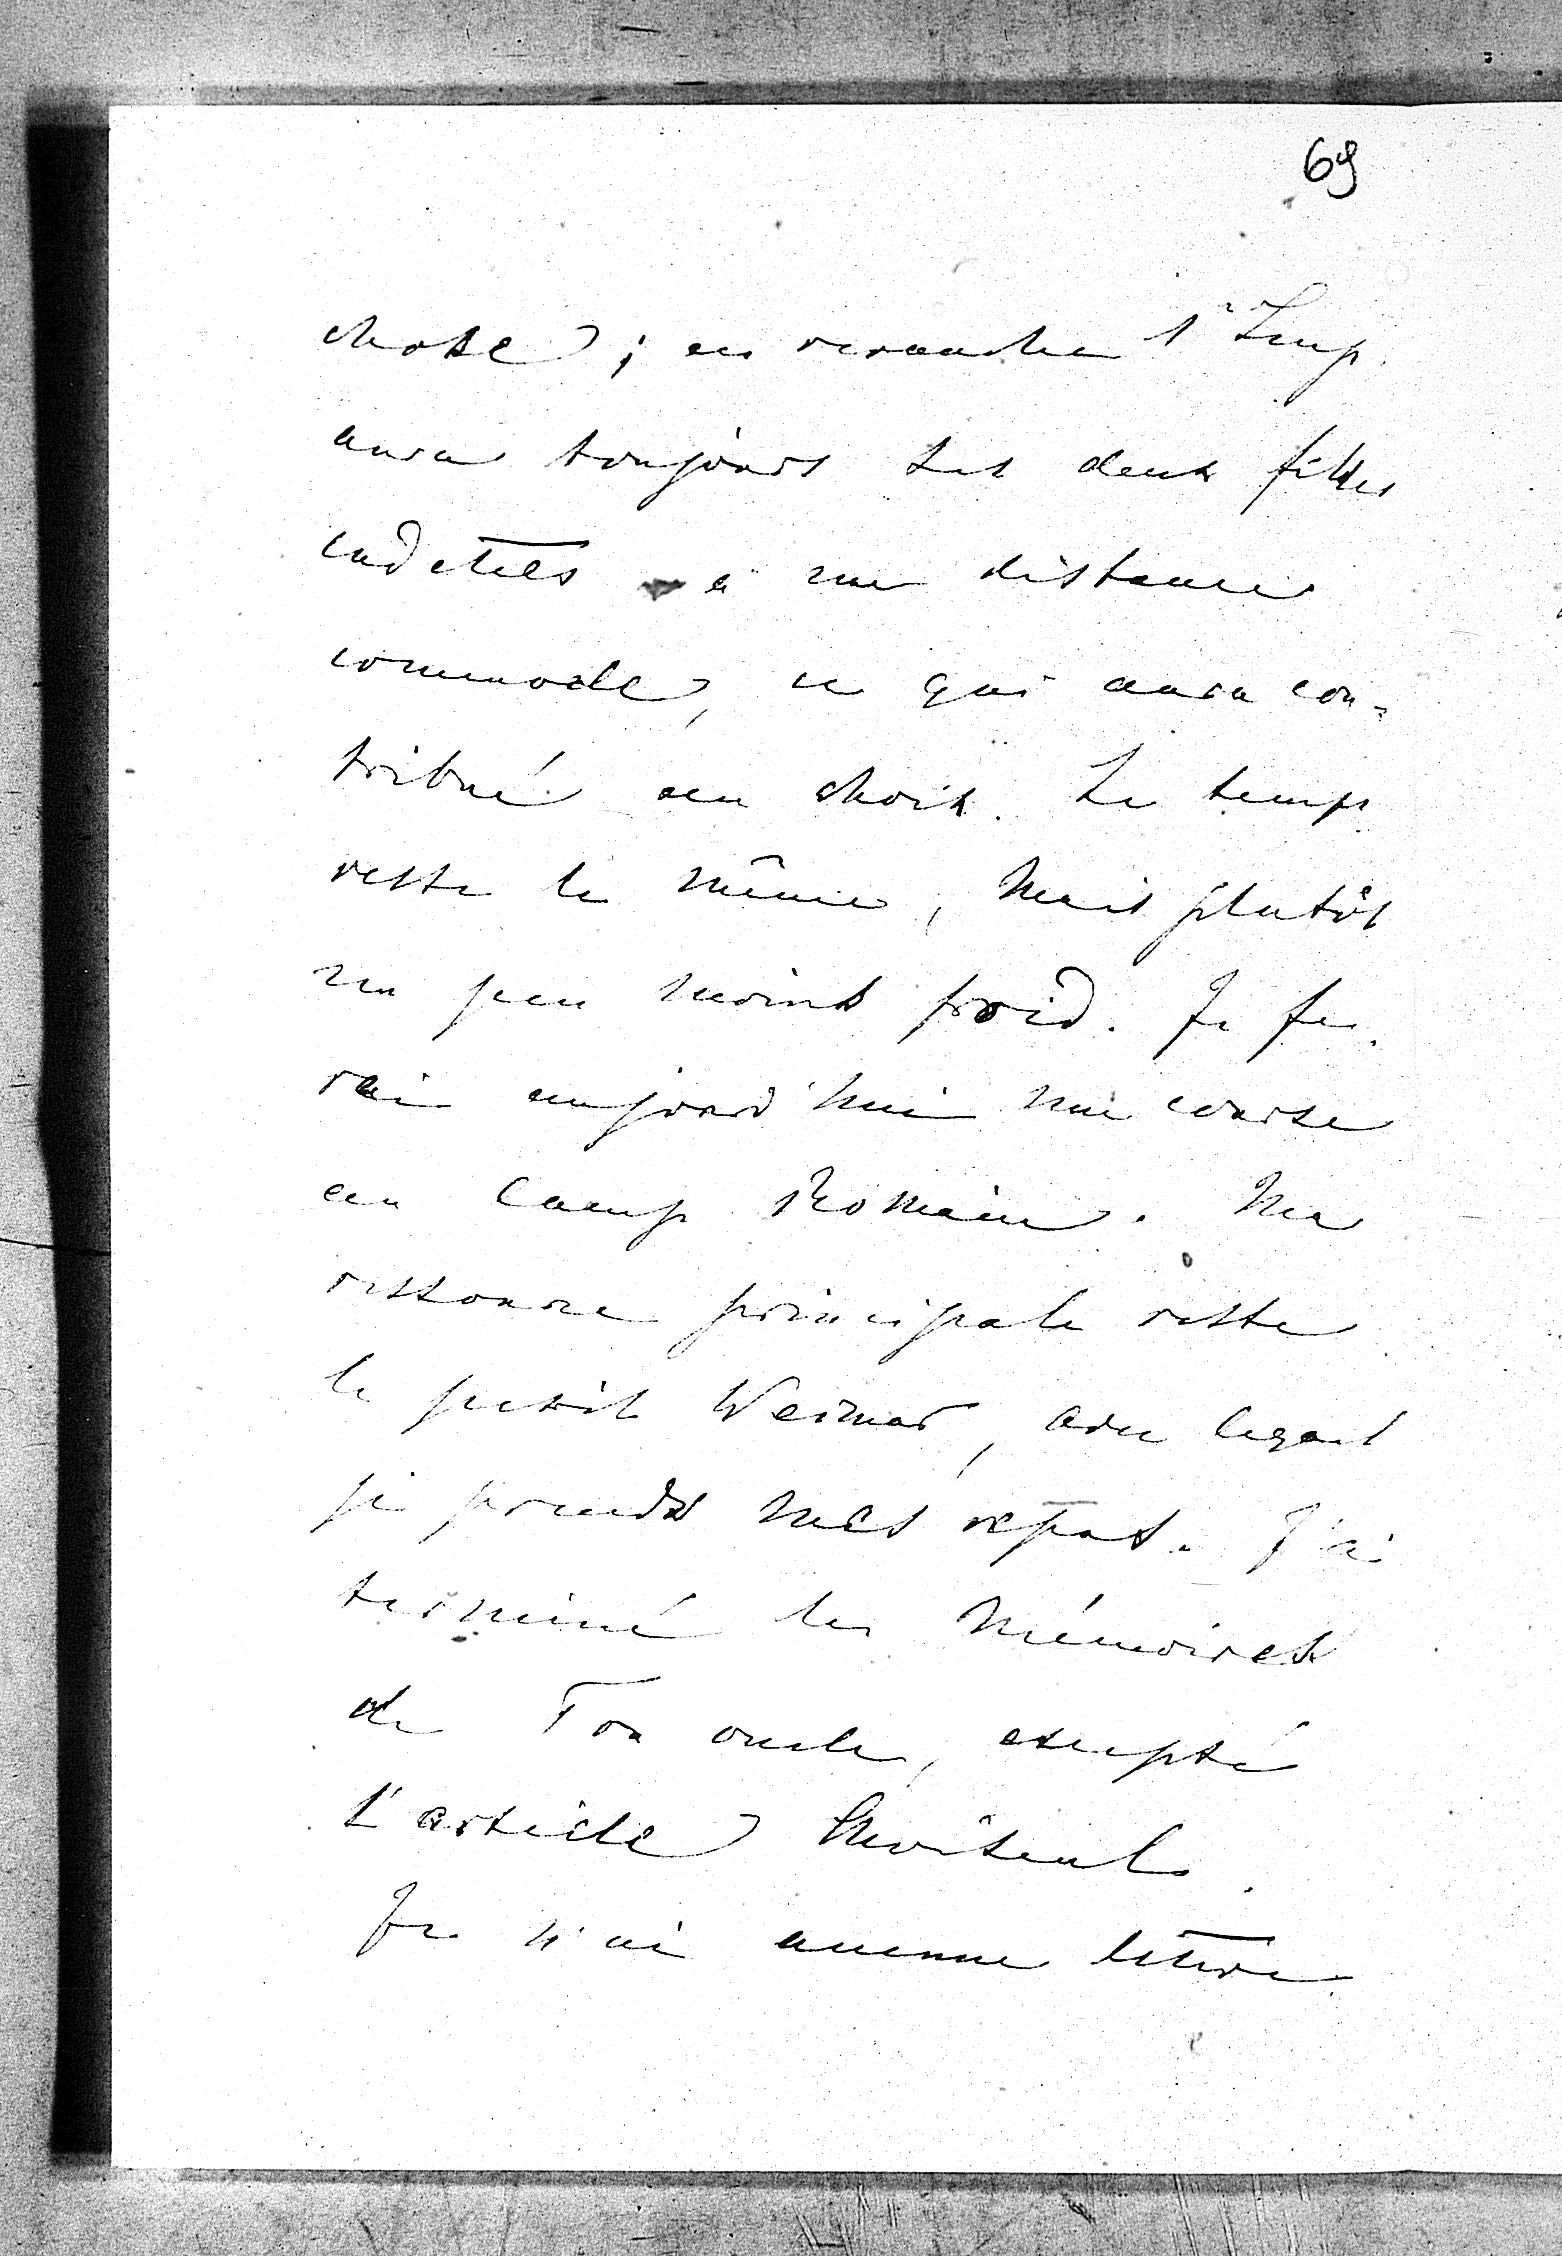 69
chose; en revanche l'Imp.
aura toujours ses deux filles
cadettes à une distance
commode, ce qui aura con-
tribué au choix. Le temps
reste le même, mais plutôt
un peu moins froid. Je fe-
rai aujourd'hui une course
au Camp Romain. Ma
ressource principale reste
le petit Weimar, avec lequel
je prends mes repas. J'ai
terminé les Mémoires
de Ton oncle, excepté
l'article Choiseul.
Je n'ai aucune lettre